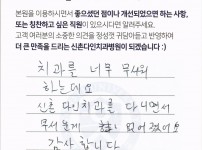 본원을 이용하시면서 좋으셨던 점이나 개선되었으면 하는 사항,
또는 칭찬하고 싶은 직원이 있으시다면 알려주세요.
고객 여러분의 소중한 의견을 정성껏 귀담아듣고 반영하여
더 큰 만족을 드리는 신촌다인치과병원이 되겠습니다 :)
치과를 너무 무서워
하는데요
신촌 다인치과를 다니면서
무서움이 없어졌어요
감사합니다